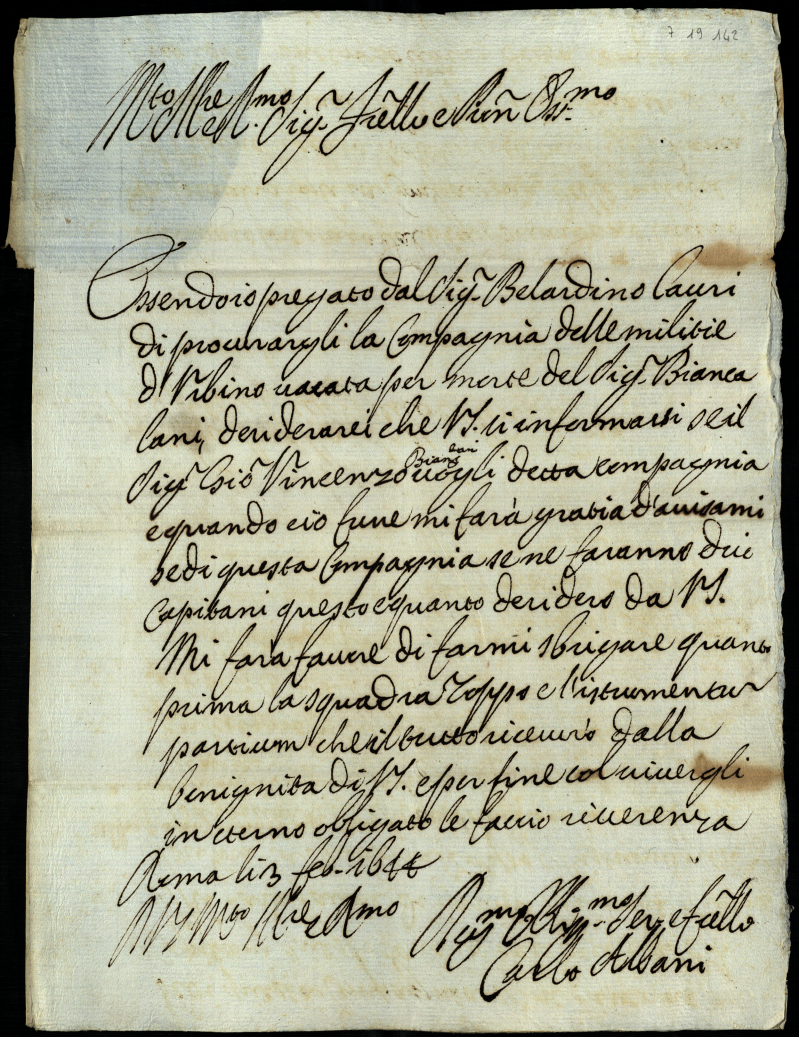 7 19 142
Mto Ill.re R.mo Sig.r Fr̃ello e Pñ Oss.mo
Essendo io pregato dal Sig.r Belardino Lauri
di procurargli la Compagnia delle militie
d'Vrbino uacata per morte del Sig.r Bianca
lani, desiderarei che VS. si informassi se il
Sig.r Giõ Vincenzo Biancalani uogli detta compagnia
e quando ciò fusse mi farà gratia d'auisami
se di questa Compagnia se ne faranno dui
Capitani questo e quanto desidero da VS.
Mi farà fauore di farmi sbrigare quanto
prima la squadra Zoppo e l'istrumentur
partium che il tutto riceuerò dalla
benignità di VS. e per fine col uiuergli
in eterno obligato le faccio riuerenza
Roma li 3 feb. 1644
D VS Mto Ill.re R.mo
Oblig.mo Ser. e Fr̃ello
Carlo Albani